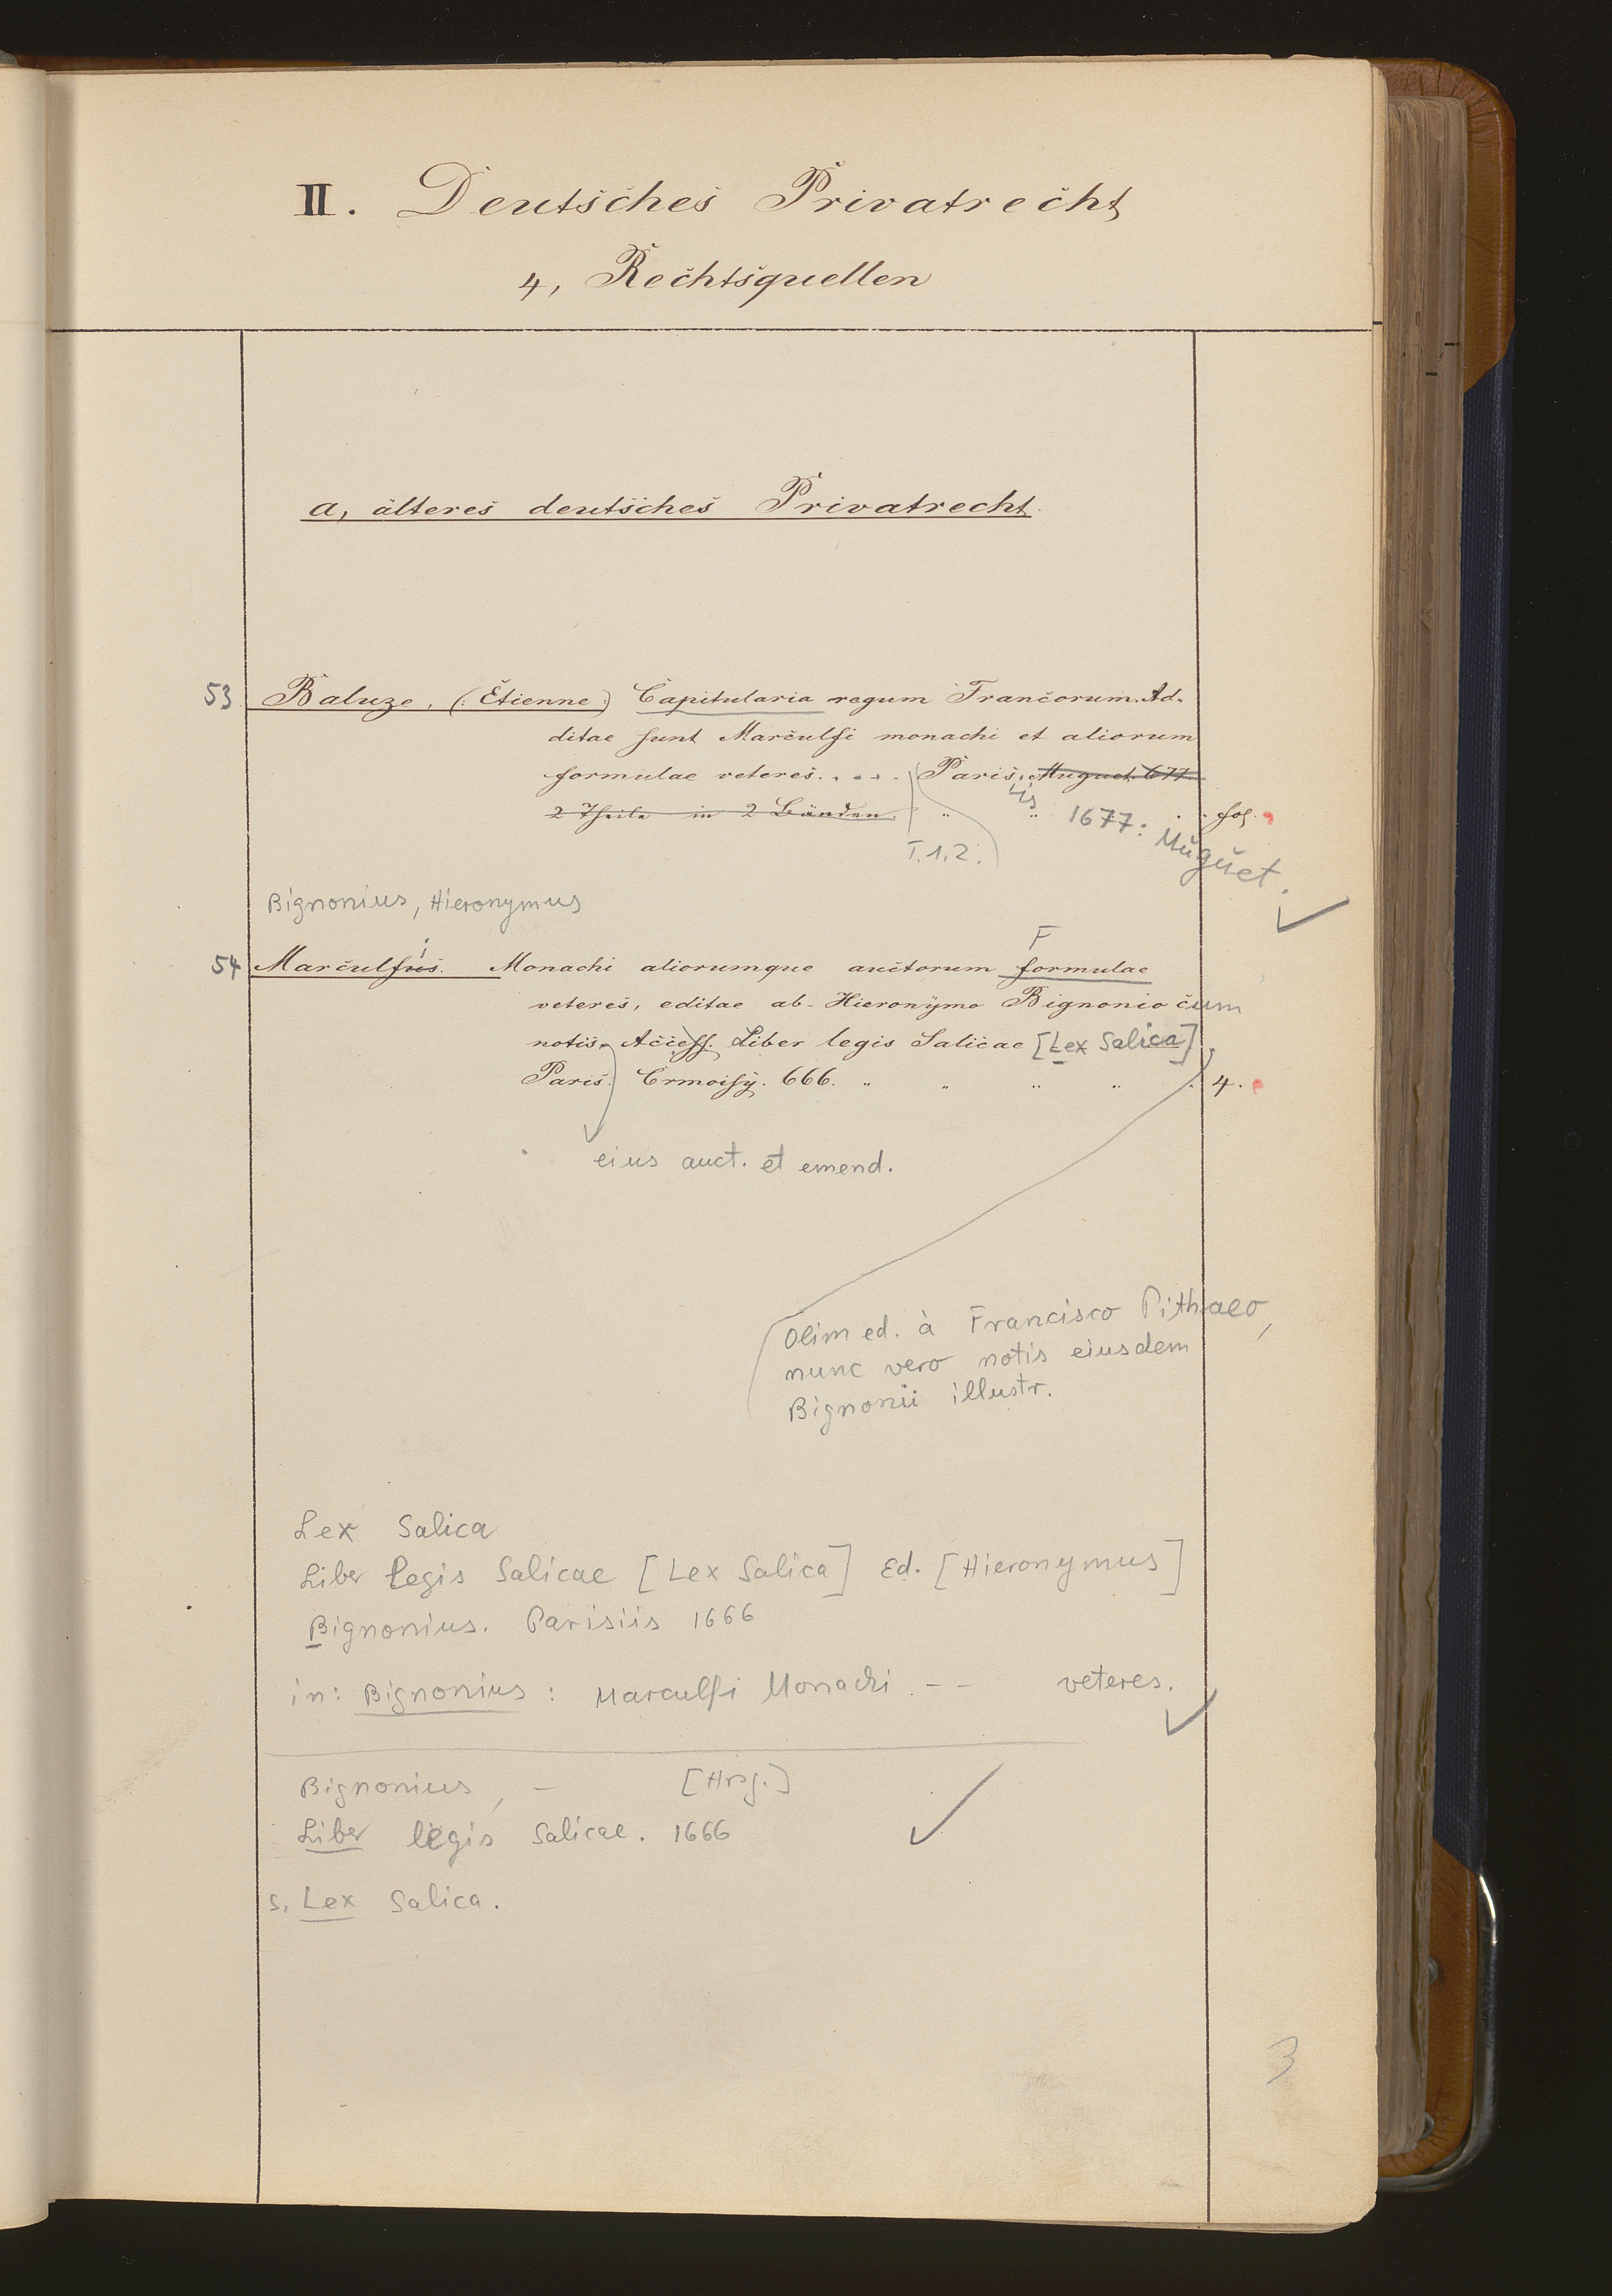 II. Deutsches Privatrecht
4, Rechtsquellen
a, älteres deutsches Privatrecht.
53 Baluze, (: Étienne :) Capitularia regum Francorum. Ad-
ditae sunt Marculfi monachi et aliorum
formulae veteres. . . . . Paris. Muguet. 677.
2 Theile in 2 Bänden. " iis " 1677: Muguet. . . fol.
T.1.2.
Bignonius, Hieronymus
i F
54 Marculfus. Monachi aliorumque auctorum formulae
veteres, editae ab Hieronymo Bignonio cum
notis. Access. Liber legis Salicae [Lex Salica].
Paris. Cramoisy. 666. " " " " . 4.
eius auct. et emend.
Olim ed. à Francisco Pithaeo,
nunc vero notis eiusdem
Bignonii illustr.
Lex Salica
Liber Legis Salicae [Lex Salica] Ed. [Hieronymus]
Bignonius. Parisiis 1666
in: Bignonius: Marculfi Monachi. – – veteres.
Bignonius, – [Hrsg.]
Liber legis Salicae. 1666
s. Lex Salica.
3